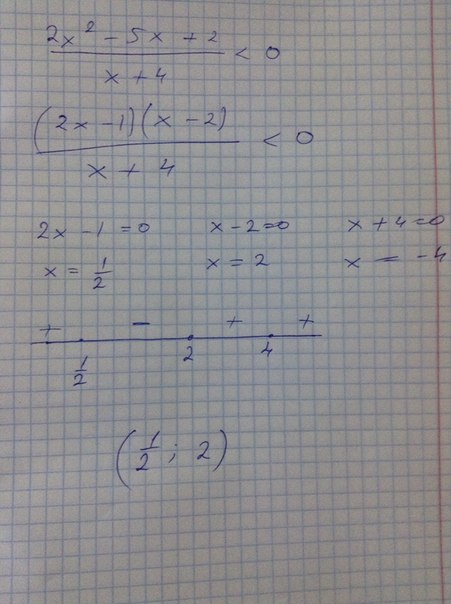 2x² - 5x + 2
x + 4
< 0
(2x - 1)(x - 2)
x + 4
< 0
2x - 1 = 0 x - 2 = 0 x + 4 = 0
x = 1/2 x = 2 x = -4
+ - + +
1/2 2 4
(1/2 ; 2)